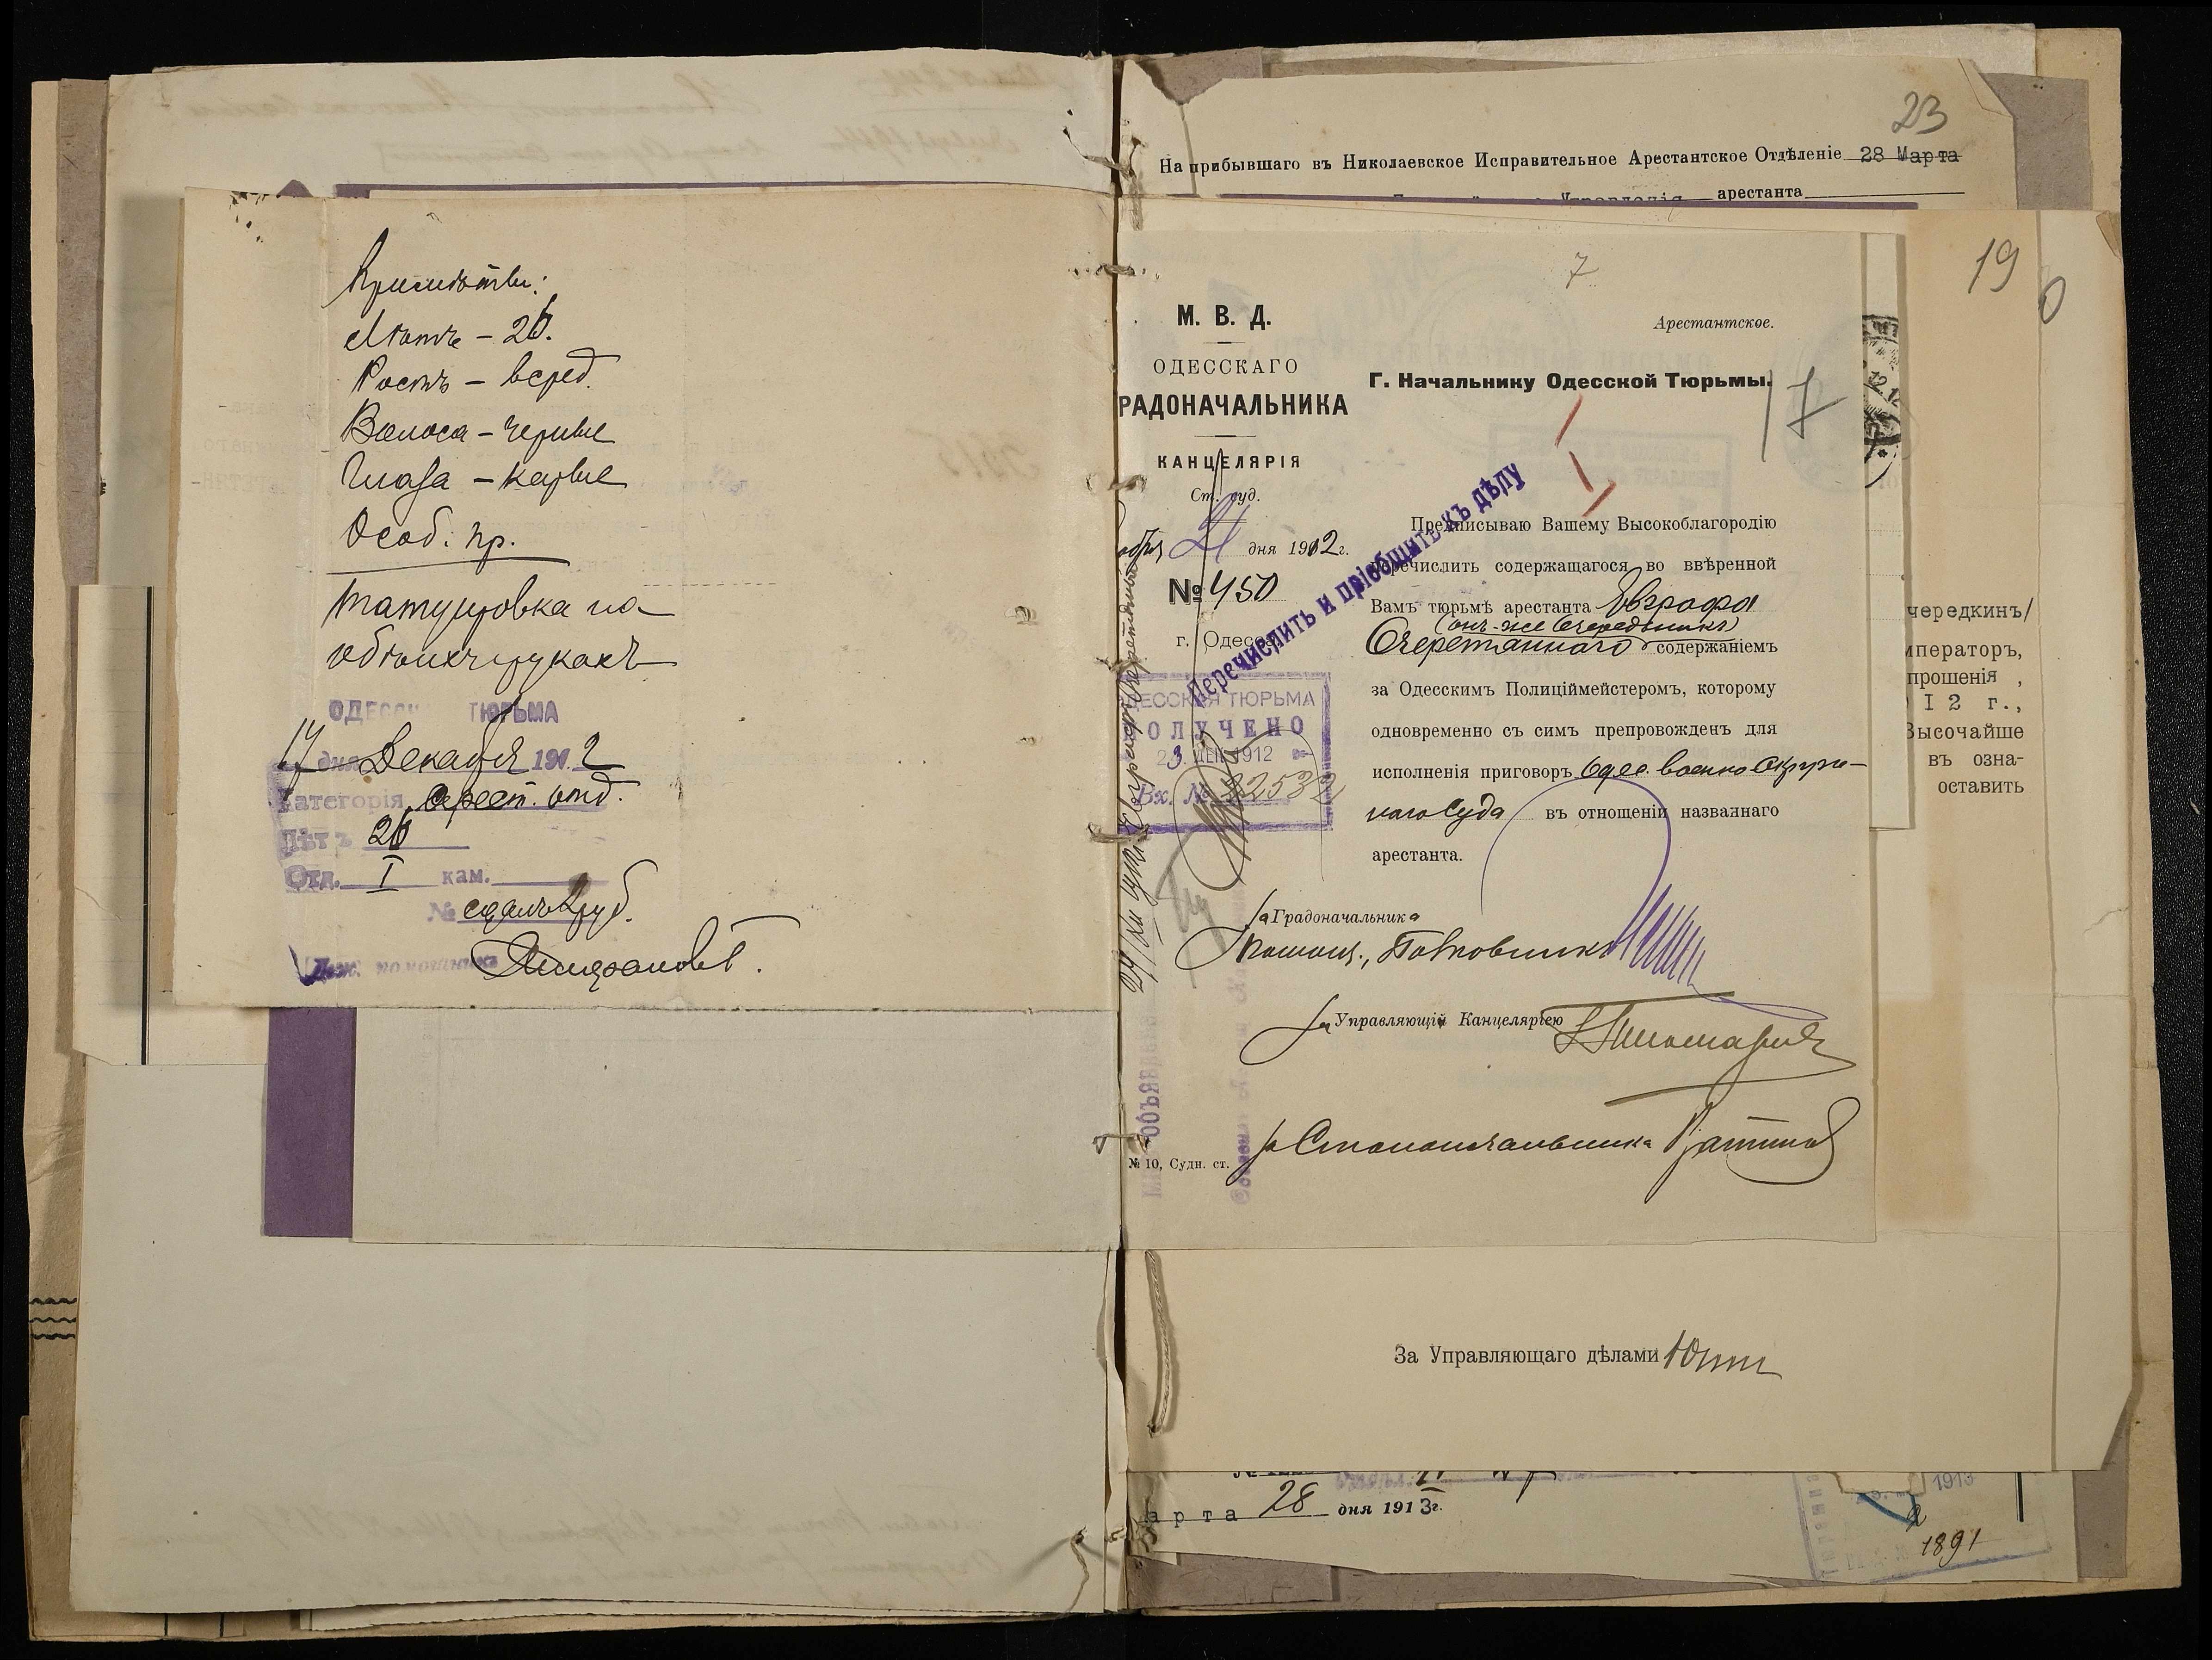 Примѣты:
Лѣтъ – 26.
Ростъ – всред.
Волоса – черные
Глаза – карые
Особ. пр.
Татуировка на
обѣихъ рукахъ
ОДЕССК ТЮРЬМА
17 дня Декабря 1912
Категорія Арест. отд.
Лѣтъ 26
Отд. I кам.
№ сдалъ руб.
Деж. помощникъ
23
На прибывшаго въ Николаевское Исправительное Арестантское Отдѣленіе 28 Марта
Управленія арестанта
19
7
М. В. Д.
Арестантское.
ОДЕССКАГО
РАДОНАЧАЛЬНИКА
Г. Начальнику Одесской Тюрьмы.
17
КАНЦЕЛЯРІЯ
Ст. суд.
ября 21 дня 1912 г.
№ 450
г. Одесса
Перечислить и пріобщить къ дѣлу
Предписываю Вашему Высокоблагородію
перечислить содержащагося во ввѣренной
Вамъ тюрьмѣ арестанта Евграфа
(онъ-же Очередникъ)
Очеретаннаго содержаніемъ
за Одесскимъ Полиціймейстеромъ, которому
одновременно съ симъ препровожденъ для
исполненія приговоръ Одес. военно Окруж-
наго Суда въ отношеніи названнаго
арестанта.
ДЕССКАЯ ТЮРЬМА
ОЛУЧЕНО
23 ДЕК 1912
Вх. № 22532
За Градоначальника
Помощ., Полковникъ
За Управляющій Канцеляріею
За Столоначальника
№ 10, Судн. ст.
чередкинъ/
мператоръ,
прошенія ,
12 г.,
Высочайше
въ озна-
оставить
За Управляющаго дѣлами
арта 28 дня 1913 г.
1913
1891